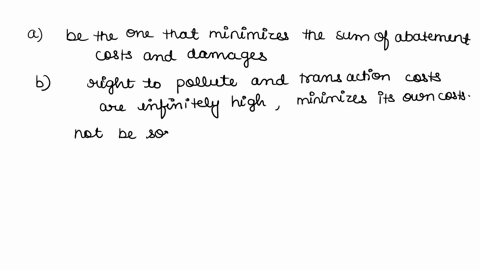 a) be the one that minimizes the sum of abatement
costs and damages
b) right to pollute and transaction costs
are infinitely high, minimizes its own costs.
not be so